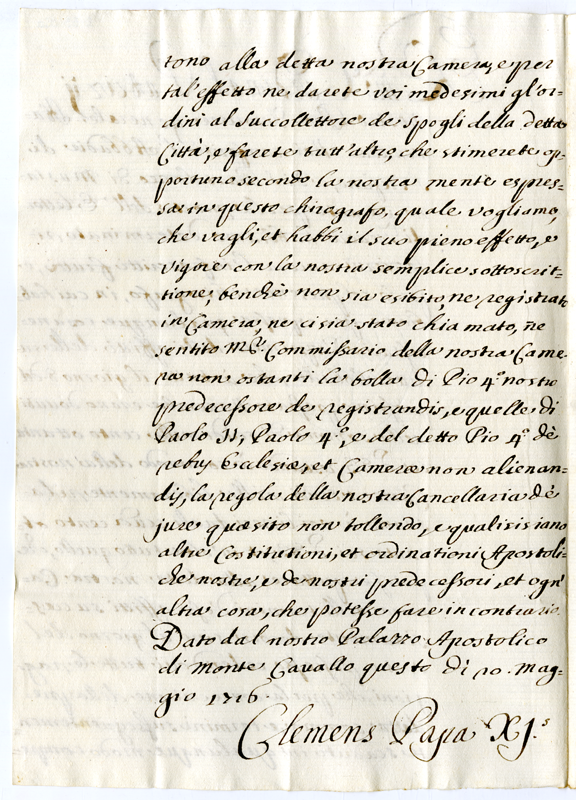 tono alla detta nostra Camera, e per
tal'effetto ne darete voi medesimi gl'or=
dini al Succollettore de Spogli della detta
Città, e farete tutt'altro, che stimerete op=
portuno secondo la nostra mente espres=
sa in questo chirografo, quale vogliamo,
che vagli, et habbi il suo pieno effetto, e
vigore con la nostra semplice sottoscrit=
tione, benchè non sia esibito, ne registrato
in Camera, ne ci sia stato chiamato, ne
sentito Mr. Commissario della nostra Came=
ra non ostanti la bolla di Pio 4.º nostro
predecessore de registrandis, e quelle di
Paolo II, Paolo 4.º, e del detto Pio 4.º de
rebus Ecclesiæ, et Cameræ non alienan=
dis, la regola della nostra Cancellaria de
jure quæsito non tollendo, e qualisisiano
altre Costitutioni, et ordinationi Apostoli=
che nostre, e de nostri predecessori, et ogn'
altra cosa, che potesse fare in contrario.
Dato dal nostro Palazzo Apostolico
di Monte Cavallo questo dì 20. Mag=
gio 1716.
Clemens Papa XI.s